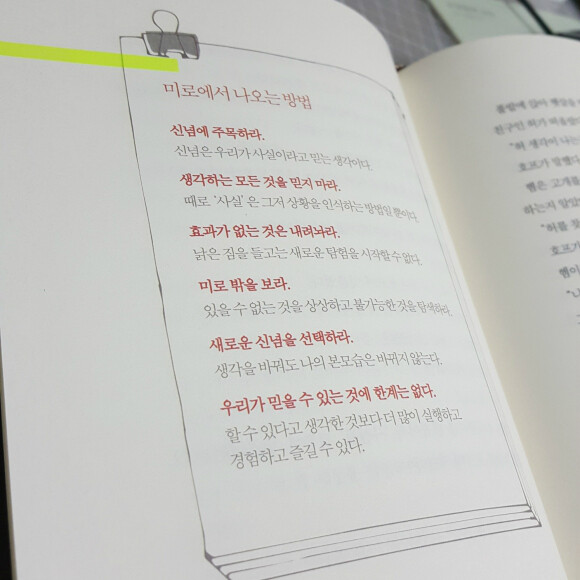 미로에서 나오는 방법
신념에 주목하라.
신념은 우리가 사실이라고 믿는 생각이다.
생각하는 모든 것을 믿지 마라.
때로 '사실'은 그저 상황을 인식하는 방법일 뿐이다.
효과가 없는 것은 내려놔라.
낡은 짐을 들고는 새로운 탐험을 시작할 수 없다.
미로 밖을 보라.
있을 수 없는 것을 상상하고 불가능한 것을 탐색하라.
새로운 신념을 선택하라.
생각을 바꿔도 나의 본모습은 바뀌지 않는다.
우리가 믿을 수 있는 것에 한계는 없다.
할 수 있다고 생각한 것보다 더 많이 실행하고
경험하고 즐길 수 있다.
친구인 허가 떠올랐
"허 생각이 나는
호프가 말했
헴은 고개를
하는지 알았
"허를 찾
호프가
헴이
"나